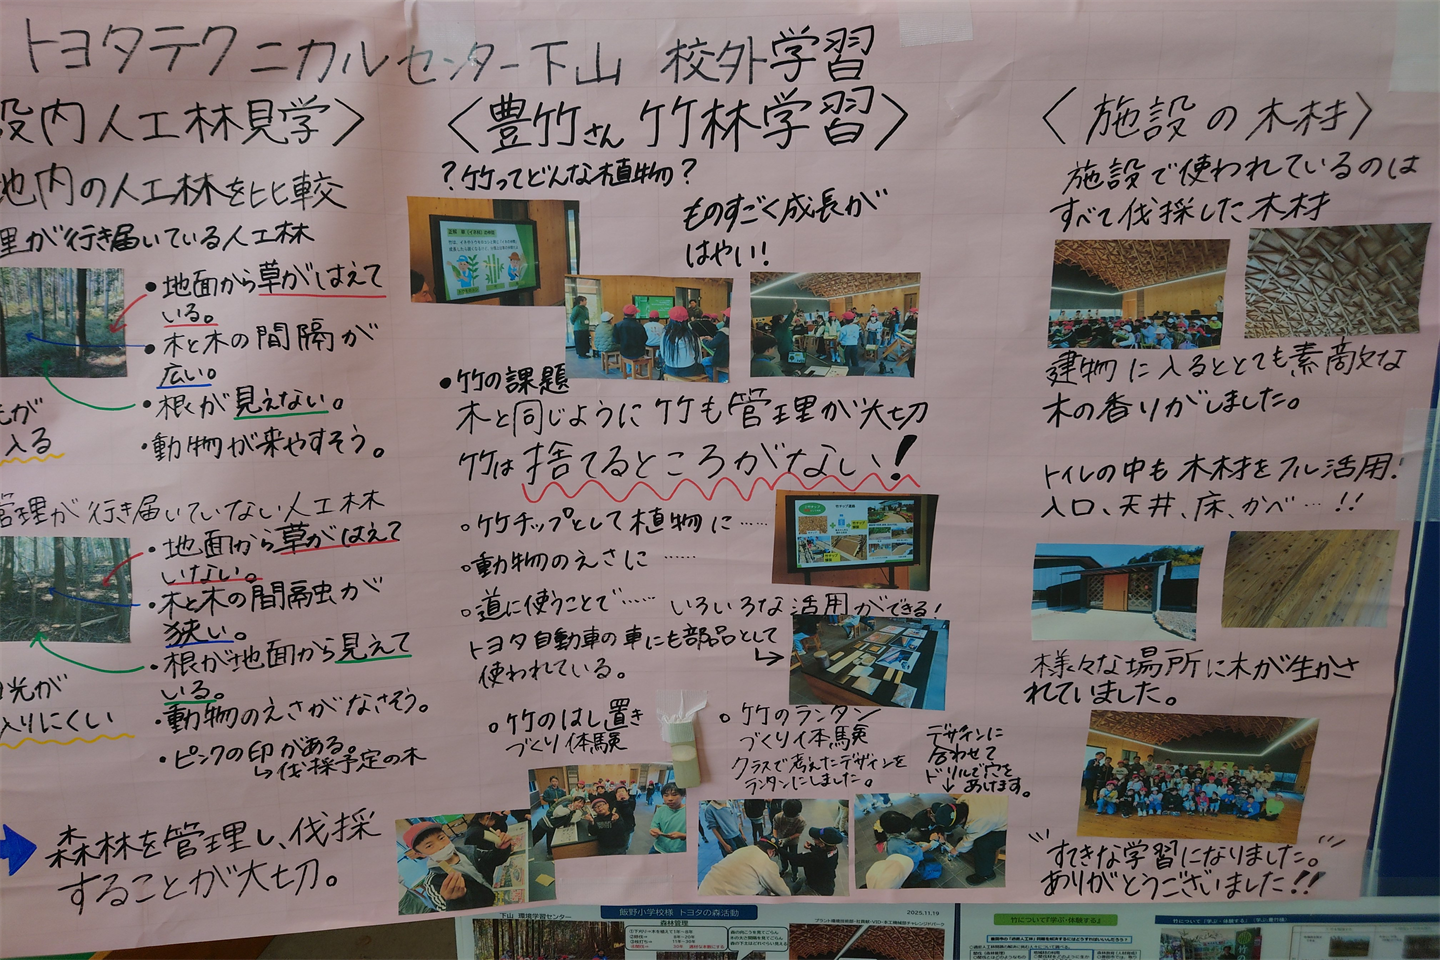 トヨタテクニカルセンター下山 校外学習
設内人工林見学〉
地内の人工林を比較
理が行き届いている人工林
・地面から草がはえて
いる。
・木と木の間隔が
広い。
・根が見えない。
・動物が来やすそう。
光が
入る
管理が行き届いていない人工林
・地面から草がはえて
いない。
・木と木の間隔が
狭い。
・根が地面から見えて
いる。
・動物のえさがなさそう。
・ピンクの印がある。
↳伐採予定の木
光が
入りにくい
森林を管理し、伐採
することが大切。
〈豊竹さん 竹林学習〉
?竹ってどんな植物?
ものすごく成長が
はやい!
・竹の課題
木と同じように竹も管理が大切
竹は捨てるところがない!
。竹チップとして植物に……
。動物のえさに……
。道に使うことで…… いろいろな活用ができる!
トヨタ自動車の車にも部品として
使われている。
。竹のはし置き
づくり体験
。竹のランタン
づくり体験
クラスで考えたデザインを
ランタンにしました。
デザインに
合わせて
ドリルで穴を
あけます。
〈施設の木材〉
施設で使われているのは
すべて伐採した木材
建物に入るととても素敵な
木の香りがしました。
トイレの中も木材をフル活用!
入口、天井、床、かべ…!!
様々な場所に木が生かさ
れていました。
すてきな学習になりました。
ありがとうございました!!
下山 環境学習センター
飯野小学校様 トヨタの森活動
森林管理
2025.11.19
竹について『学ぶ・体験する』